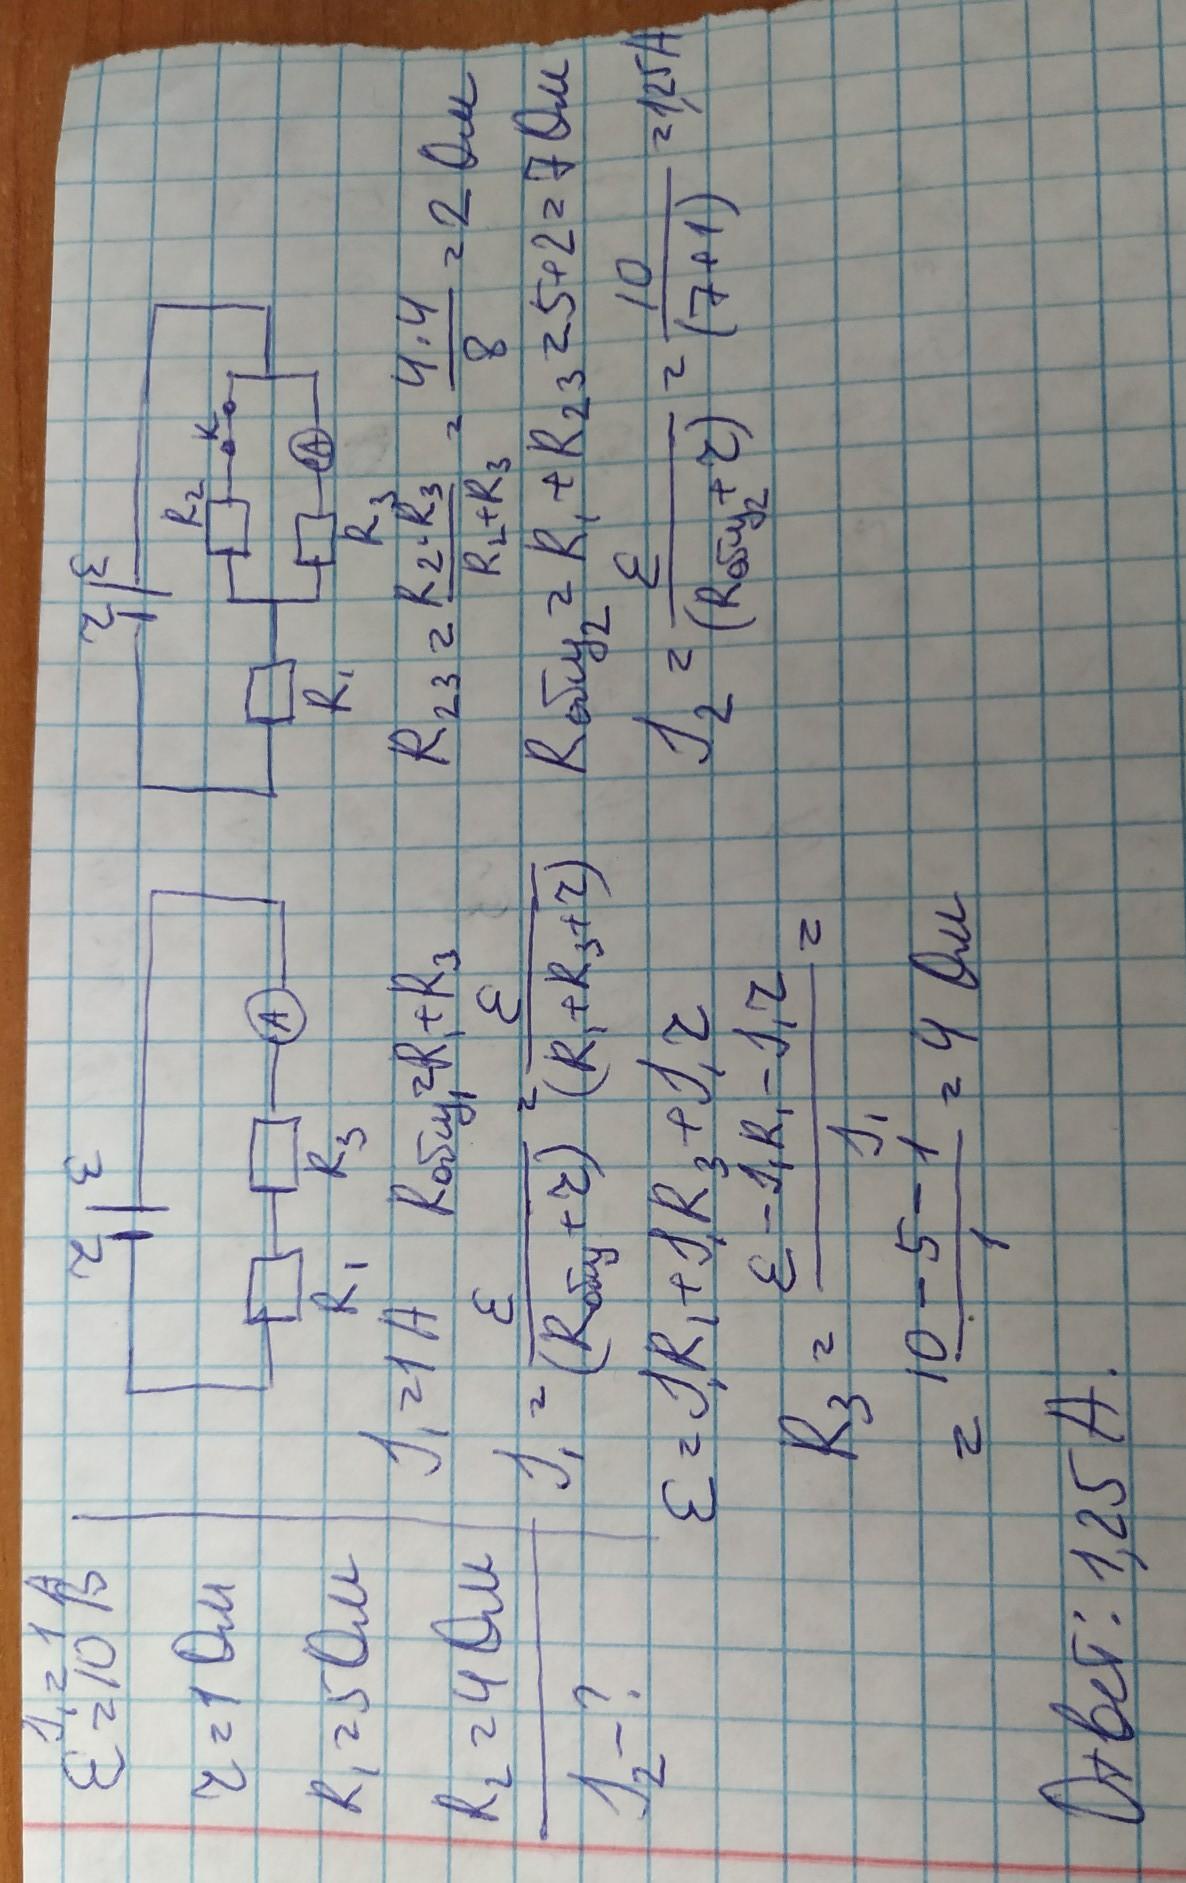 I₁ = 1 А
ε = 10 В
r = 1 Ом
R₁ = 5 Ом
R₂ = 4 Ом
I₂ - ?
r ε
R₁ R₃ A
I₁ = 1 А Rобщ₁ = R₁ + R₃
I₁ = ε / (Rобщ + r) = ε / (R₁ + R₃ + r)
ε = I₁R₁ + I₁R₃ + I₁r
R₃ = (ε - I₁R₁ - I₁r) / I₁ =
= (10 - 5 - 1) / 1 = 4 Ом
r ε
R₂ K
R₁ R₃ A
R₂₃ = R₂·R₃ / R₂+R₃ = 4·4 / 8 = 2 Ом
Rобщ₂ = R₁ + R₂₃ = 5+2 = 7 Ом
I₂ = ε / (Rобщ₂ + r) = 10 / (7+1) = 1,25 А
Ответ: 1,25 А.